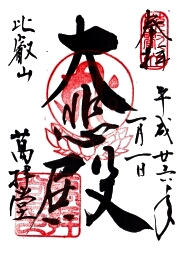 奉拝
平成廿六年
一月一日
大悲殿
比叡山
萬拝堂